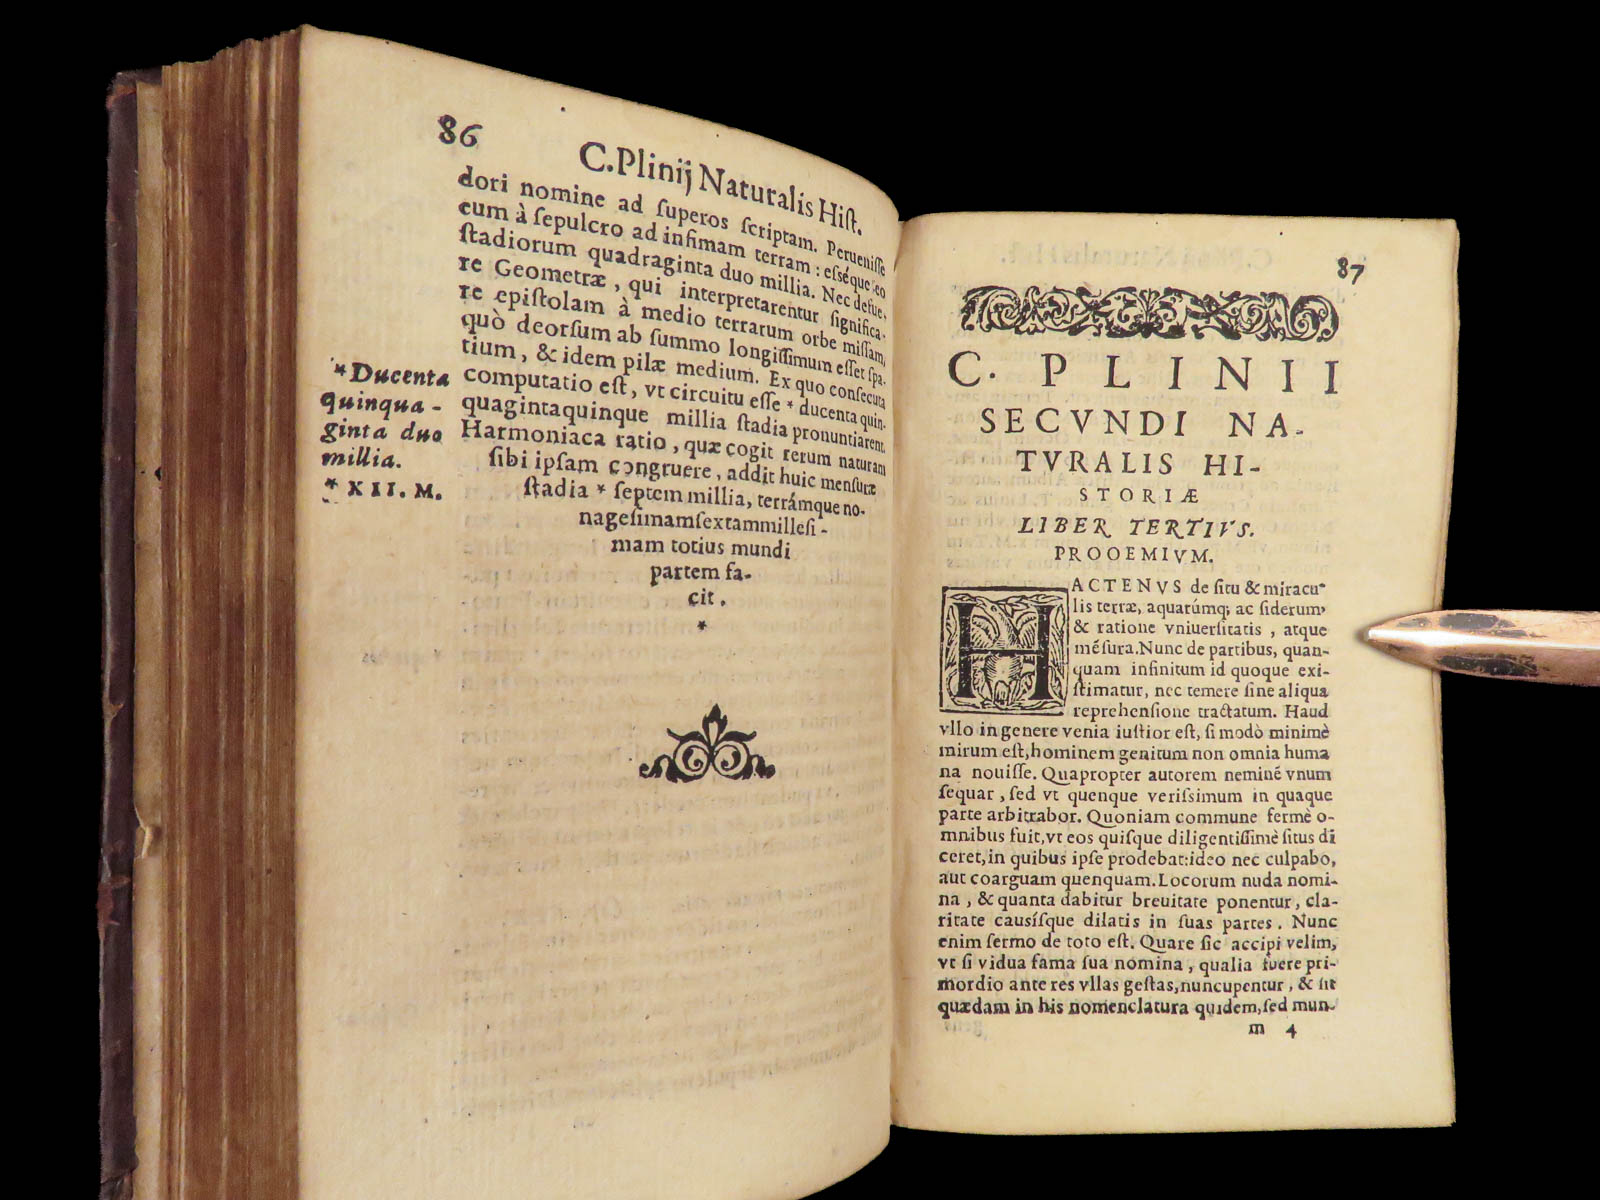 86
C. Plinij Naturalis Hiſt.
dori nomine ad ſuperos ſcriptam. Perueniſſe
eum à ſepulcro ad infimam terram : eſſéque eo
ſtadiorum quadraginta duo millia. Nec defue,
re Geometræ, qui interpretarentur ſignifica-
re epiſtolam à medio terrarum orbe miſſam,
quò deorſum ab ſummo longiſſimum eſſet ſpa-
tium, & idem pilæ medium. Ex quo conſecuta
computatio eſt, vt circuitu eſſe * ducenta quin-
quagintaquinque millia ſtadia pronuntiarent.
Harmoniaca ratio, quæ cogit rerum naturam
ſibi ipſam congruere, addit huic menſuræ
ſtadia * ſeptem millia, terrámque no-
nageſimamſextammilleſi-
mam totius mundi
partem fa-
cit.
*
*Ducenta
quinqua-
ginta duo
millia.
* XII. M.
87
C. PLINII
SECVNDI NA-
TVRALIS HI-
STORIÆ
LIBER TERTIVS.
PROOEMIVM.
HACTENVS de ſitu & miracu-
lis terræ, aquarúmq; ac ſiderum,
& ratione vniuerſitatis, atque
mēſura. Nunc de partibus, quan-
quam infinitum id quoque exi-
ſtimatur, nec temere ſine aliqua
reprehenſione tractatum. Haud
vllo in genere venia iuſtior eſt, ſi modò minimè
mirum eſt, hominem genitum non omnia huma
na nouiſſe. Quapropter autorem neminē vnum
ſequar, ſed vt quenque veriſsimum in quaque
parte arbitrabor. Quoniam commune fermè o-
mnibus fuit, vt eos quiſque diligentiſſimè ſitus di
ceret, in quibus ipſe prodebat: ideo nec culpabo,
aut coarguam quenquam. Locorum nuda nomi-
na, & quanta dabitur breuitate ponentur, cla-
ritate causíſque dilatis in ſuas partes. Nunc
enim ſermo de toto eſt. Quare ſic accipi velim,
vt ſi vidua fama ſua nomina, qualia fuere pri-
mordio ante res vllas geſtas, nuncupentur, & ſit
quædam in his nomenclatura quidem, ſed mun-
m 4